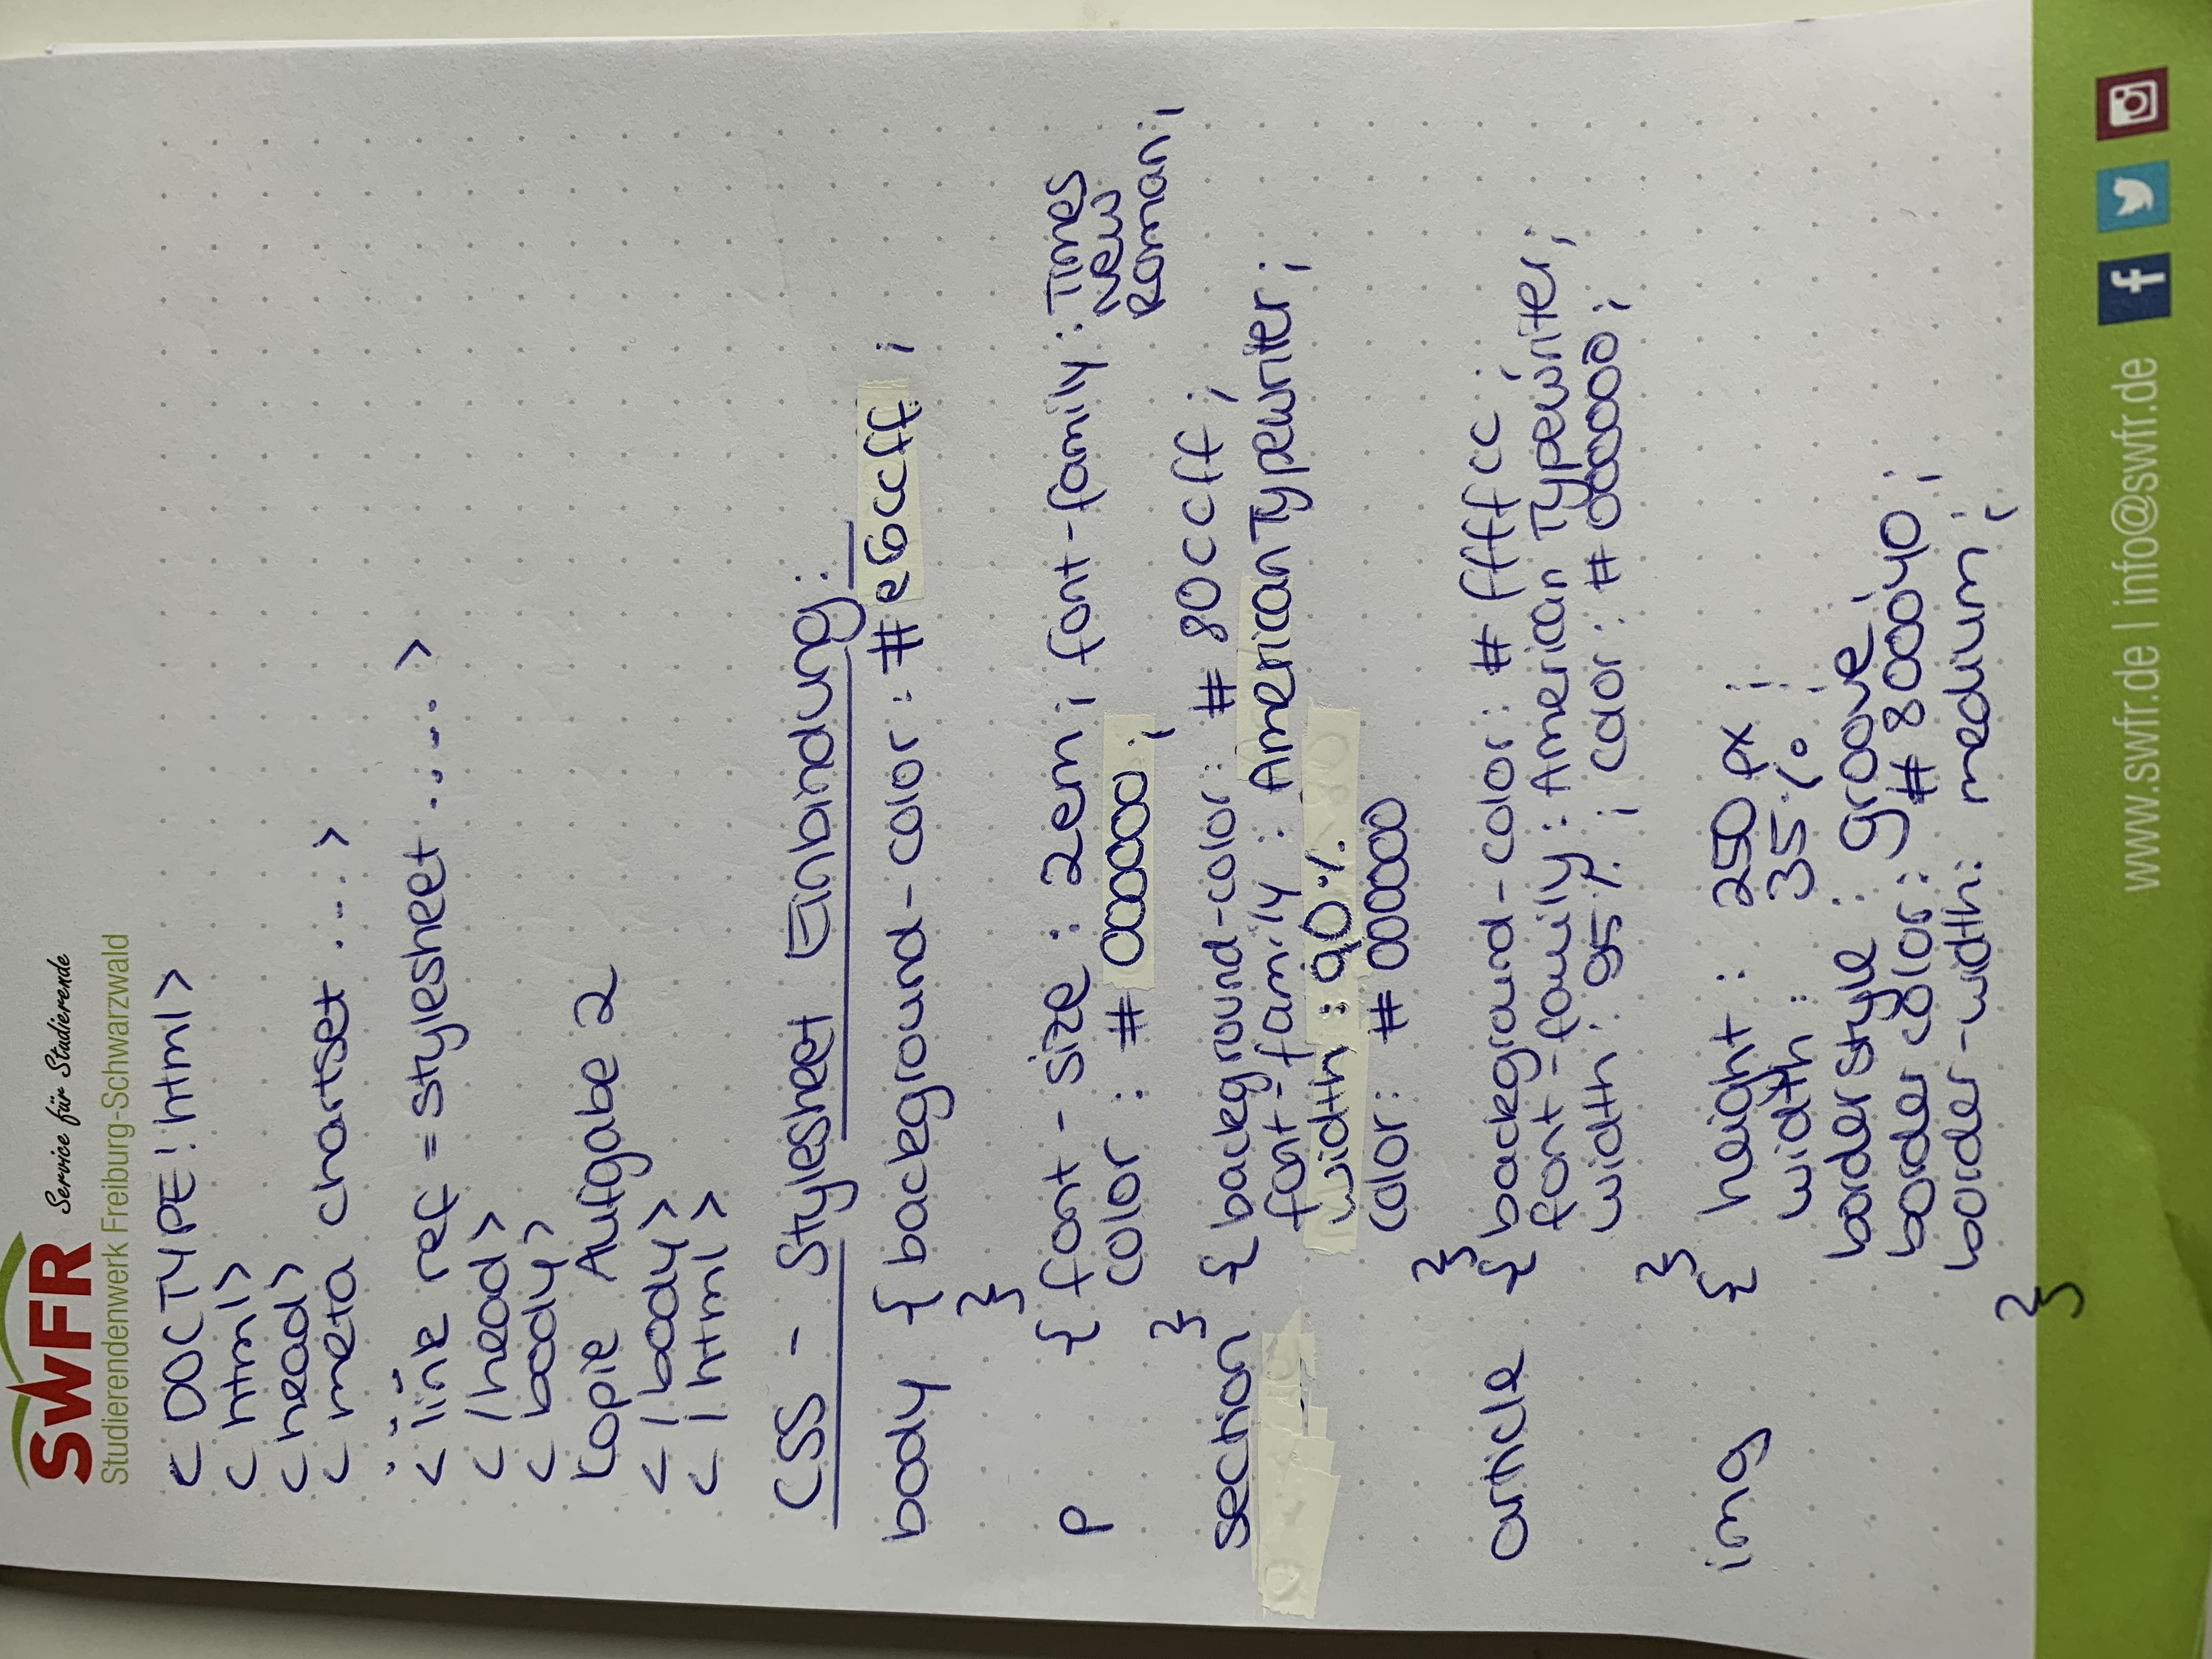 SWFR Service für Studierende
Studierendenwerk Freiburg-Schwarzwald
< DOCTYPE! html>
< html>
< head>
< meta chartset .... >
...
< link ref = stylesheet ..... >
< /head>
< body>
Kopie Aufgabe 2
< / body>
< / html>
CSS - Stylesheet Einbindung:
body { background-color: #e6ccff ;
}
p { font-size : 2em ; font-family : Times
New
color : # 000000 ;
Roman ;
}
section { background-color: # 80ccff ;
font-family : American Typewriter ;
width : 90%
color: # 000000
}
article { background-color: # ffffcc ;
font-family : American Typewriter;
width : 95% ; color : # 000000 ;
}
img { height : 250 px ;
width : 35% ;
borderstyle : groove ;
border color : # 800040 ;
border-width: medium ;
}
www.swfr.de | info@swfr.de